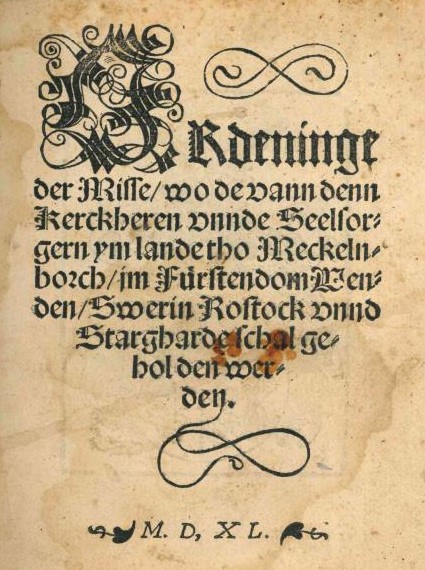 ORdeninge
der Misse/ wo de vann denn
Kerckheren vnnde Seelsor⸗
gern ym lande tho Meckeln⸗
borch/ im Fürstendom Wen⸗
den/ Swerin Rostock vnnd
Stargharde schal ge⸗
holden wer⸗
den.
M. D, XL.